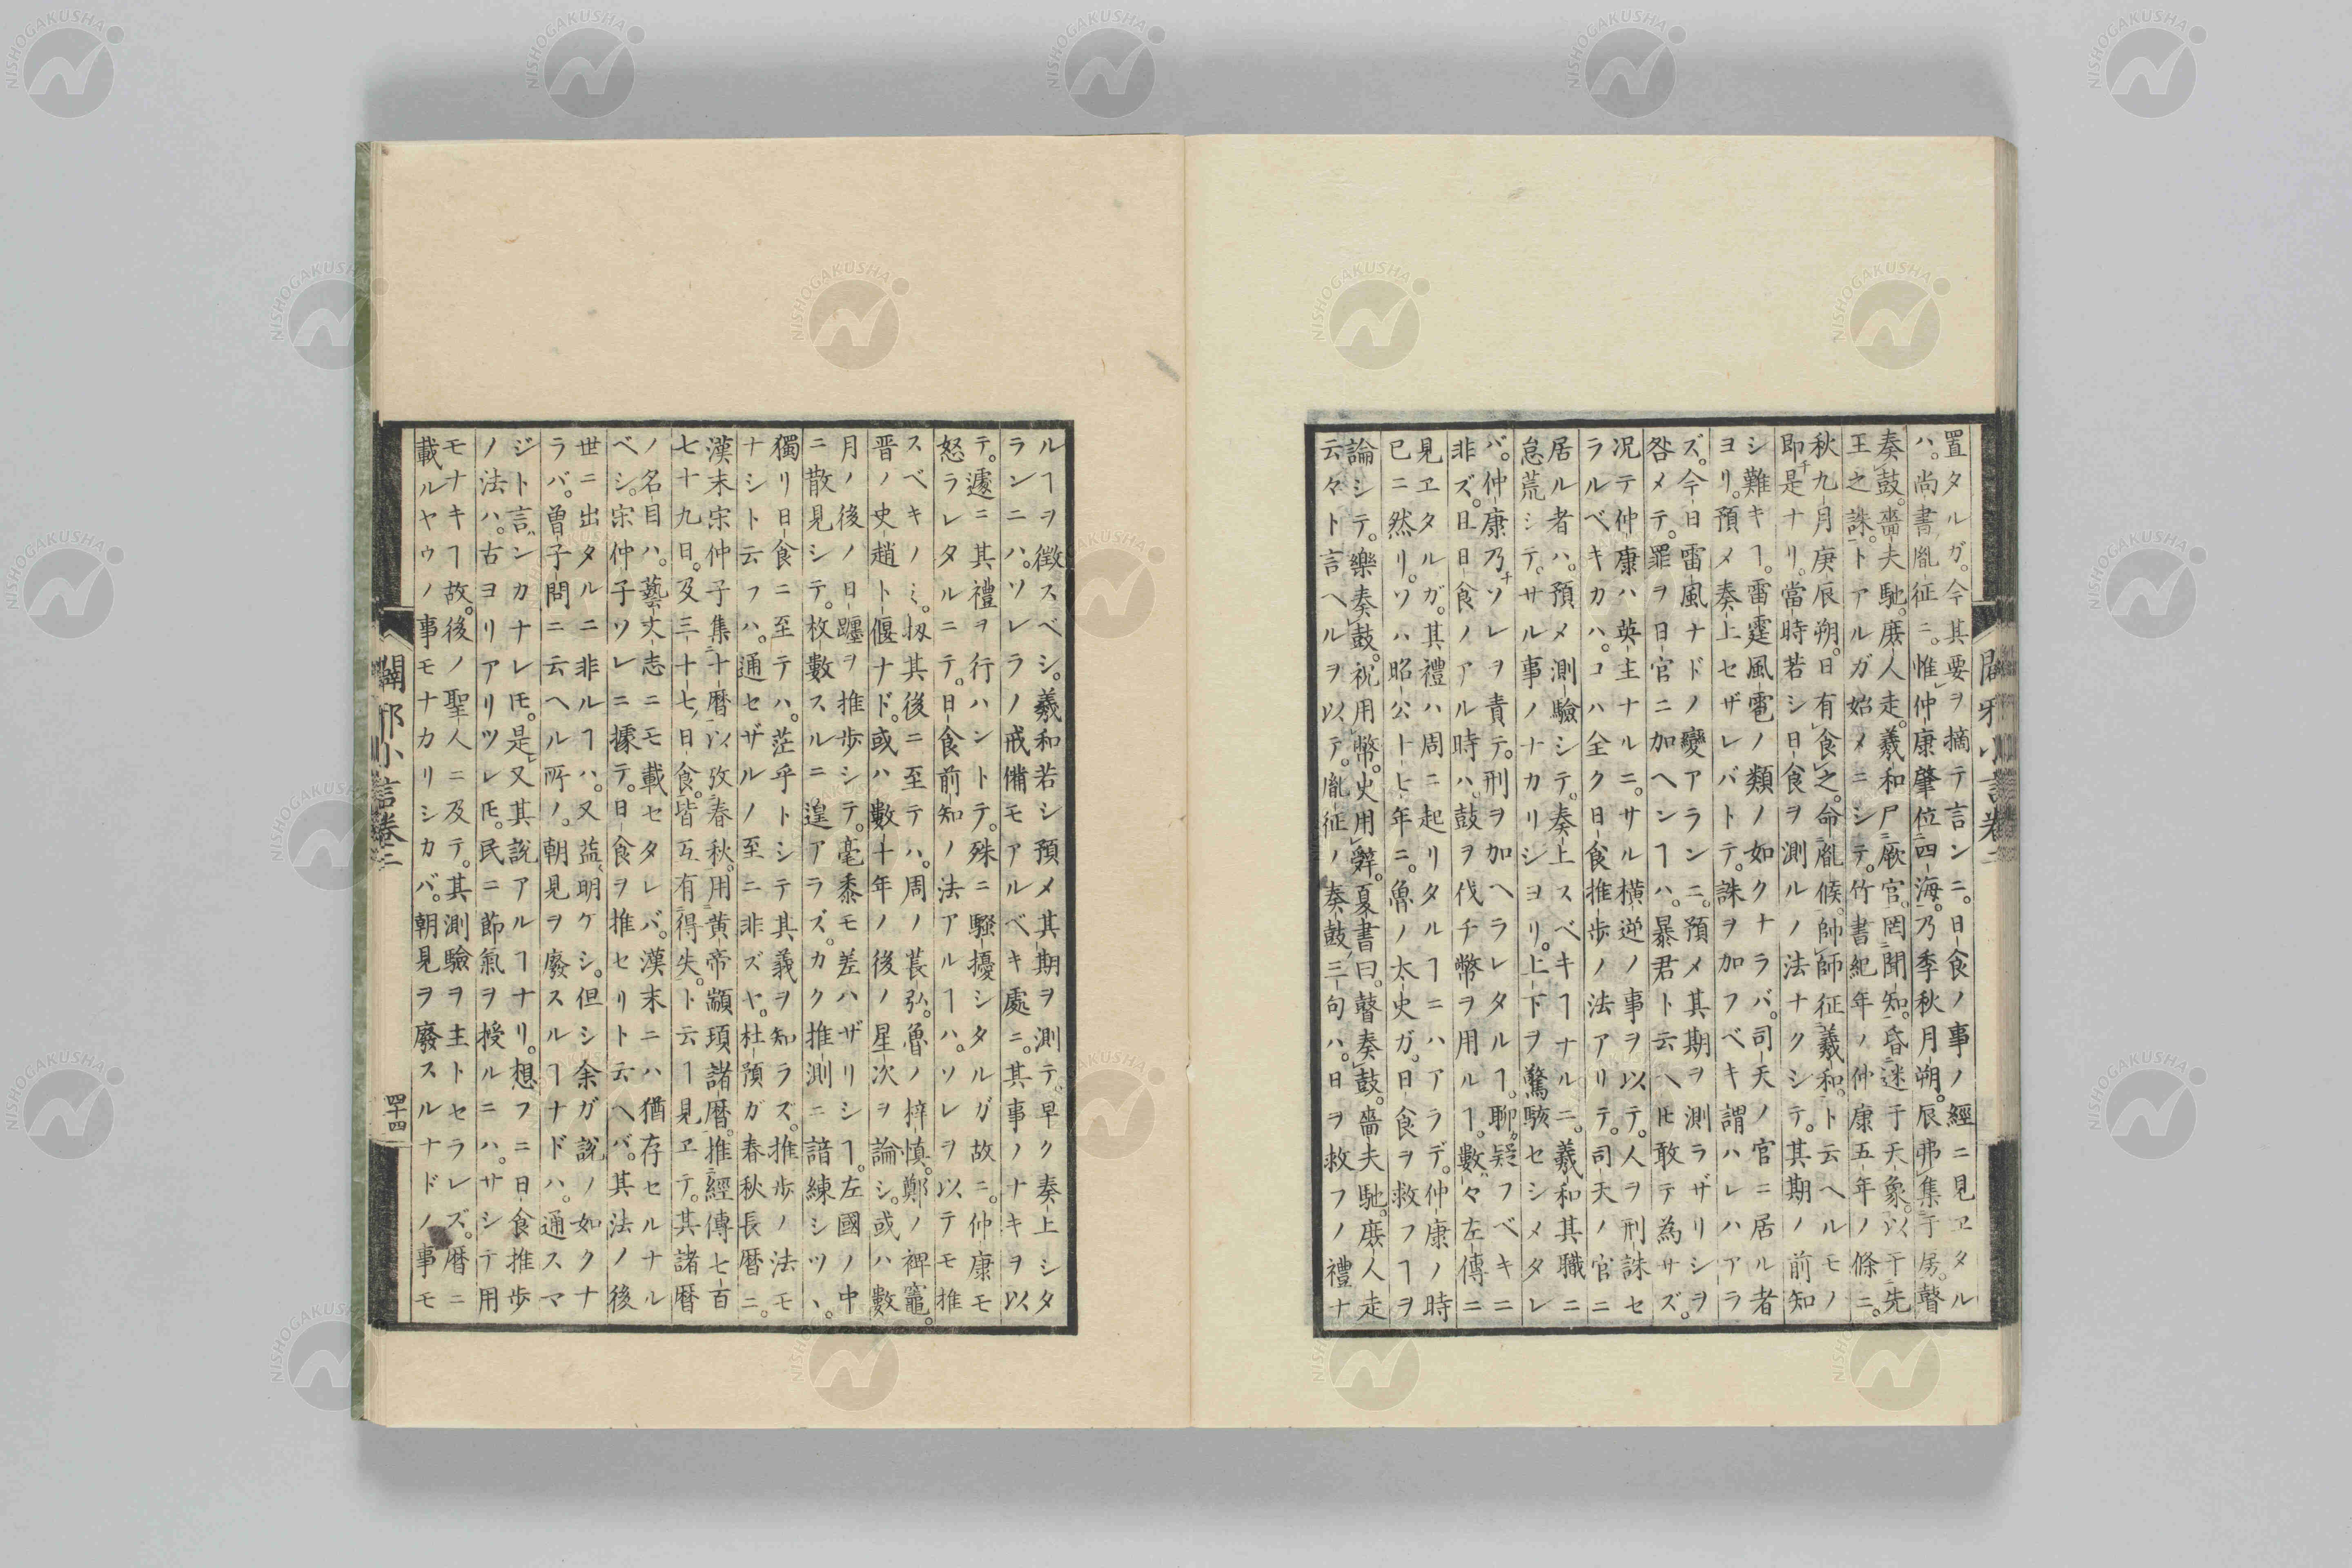 置タルガ。今其要ヲ摘テ言ンニ。日食ノ事ノ經ニ見ヱタル
ハ。尚書胤征ニ。惟仲康肇位四海。乃季秋月朔。辰弗集于房。瞽
奏鼓。嗇夫馳。庶人走。羲和尸厥官。罔聞知。昏迷于天象。以干先
王之誅。トアルガ始メニシテ。竹書紀年ノ仲康五年ノ條ニ。
秋九月庚辰朔。日有食之。命胤候。帥師征羲和。ト云ヘルモノ
即チ是ナリ。當時若シ日食ヲ測ルノ法ナクシテ。其期ノ前知
シ難キヿ。雷霆風雹ノ類ノ如クナラバ。司天ノ官ニ居ル者
ヨリ。預メ奏上セザレバトテ。誅ヲ加フベキ謂ハレハアラ
ズ。今日雷風ナドノ變アランニ。預メ其期ヲ測ラザリシヲ
咎メテ。罪ヲ日官ニ加ヘンヿハ。暴君ト云ヘ𪜈敢テ為サズ。
况テ仲康ハ英主ナルニ。サル横逆ノ事ヲ以テ。人ヲ刑誅セ
ラルベキカハ。コハ全ク日食推歩ノ法アリテ。司天ノ官ニ
居ル者ハ。預メ測驗シテ。奏上スベキヿナルニ。羲和其職ニ
怠荒シテ。サル事ノナカリシヨリ。上下ヲ驚駭セシメタレ
バ。仲康乃チソレヲ責テ。刑ヲ加ヘラレタルヿ。聊疑フベキニ
非ズ。且日食ノアル時ハ。鼓ヲ伐チ幣ヲ用ルヿ。數々左傳ニ
見ヱタルガ。其禮ハ周ニ起リタルヿニハアラデ。仲康ノ時
已ニ然リ。ソハ昭公十七年ニ。魯ノ太史ガ。日食ヲ救フノヿヲ
論シテ。樂奏鼓。祝用幣。史用辭。夏書曰。瞽奏鼓。嗇夫馳。庶人走
云々ト言ヘルヲ以テ。胤征ノ奏鼓三句ハ。日ヲ救フノ禮ナ
ルヿヲ徴スベシ。羲和若シ預メ其期ヲ測テ。早ク奏上シタ
ランニハ。ソレラノ戒備モアルベキ處ニ。其事ノナキヲ以
テ。遽ニ其禮ヲ行ハントテ。殊ニ騷擾シタルガ故ニ。仲康モ
怒ラレタルニテ。日食前知ノ法アルヿハ。ソレヲ以テモ推
スベキノミ。扨其後ニ至テハ。周ノ萇弘。魯ノ梓慎。鄭ノ裨竈。
晋ノ史趙卜偃ナド。或ハ數十年ノ後ノ星次ヲ論シ。或ハ數
月ノ後ノ日躔ヲ推歩シテ。毫黍モ差ハザリシヿ。左國ノ中
ニ散見シテ。枚數スルニ遑アラズ。カク推測ニ諳練シツヽ。
獨リ日食ニ至テハ。茫乎トシテ其義ヲ知ラズ。推歩ノ法モ
ナシト云フハ。通セザルノ至ニ非ズヤ。杜預ガ春秋長暦ニ。
漢末宗仲子集十暦。以攷春秋。用黄帝顓頊諸暦。推經傳七百
七十九日。及三十七日食。皆互有得失。ト云ヿ見ヱテ。其諸暦
ノ名目ハ。藝文志ニモ載セタレバ。漢末ニハ猶存セルナル
ベシ。宗仲子ソレニ據テ。日食ヲ推セリト云ヘバ。其法ノ後
世ニ出タルニ非ルヿハ。又益明ケシ。但シ余ガ説ノ如クナ
ラバ。曽子問ニ云ヘル所ノ。朝見ヲ廢スルヿナドハ。通スマ
ジト言ンカナレ𪜈。是又其説アルヿナリ。想フニ日食推歩
ノ法ハ。古ヨリアリツレ𪜈。民ニ節氣ヲ授ルニハ。サシテ用
モナキヿ故。後ノ聖人ニ及テ。其測驗ヲ主トセラレズ。暦ニ
載ルヤウノ事モナカリシカバ。朝見ヲ廢スルナドノ事モ
闢邪小言卷二
四十四